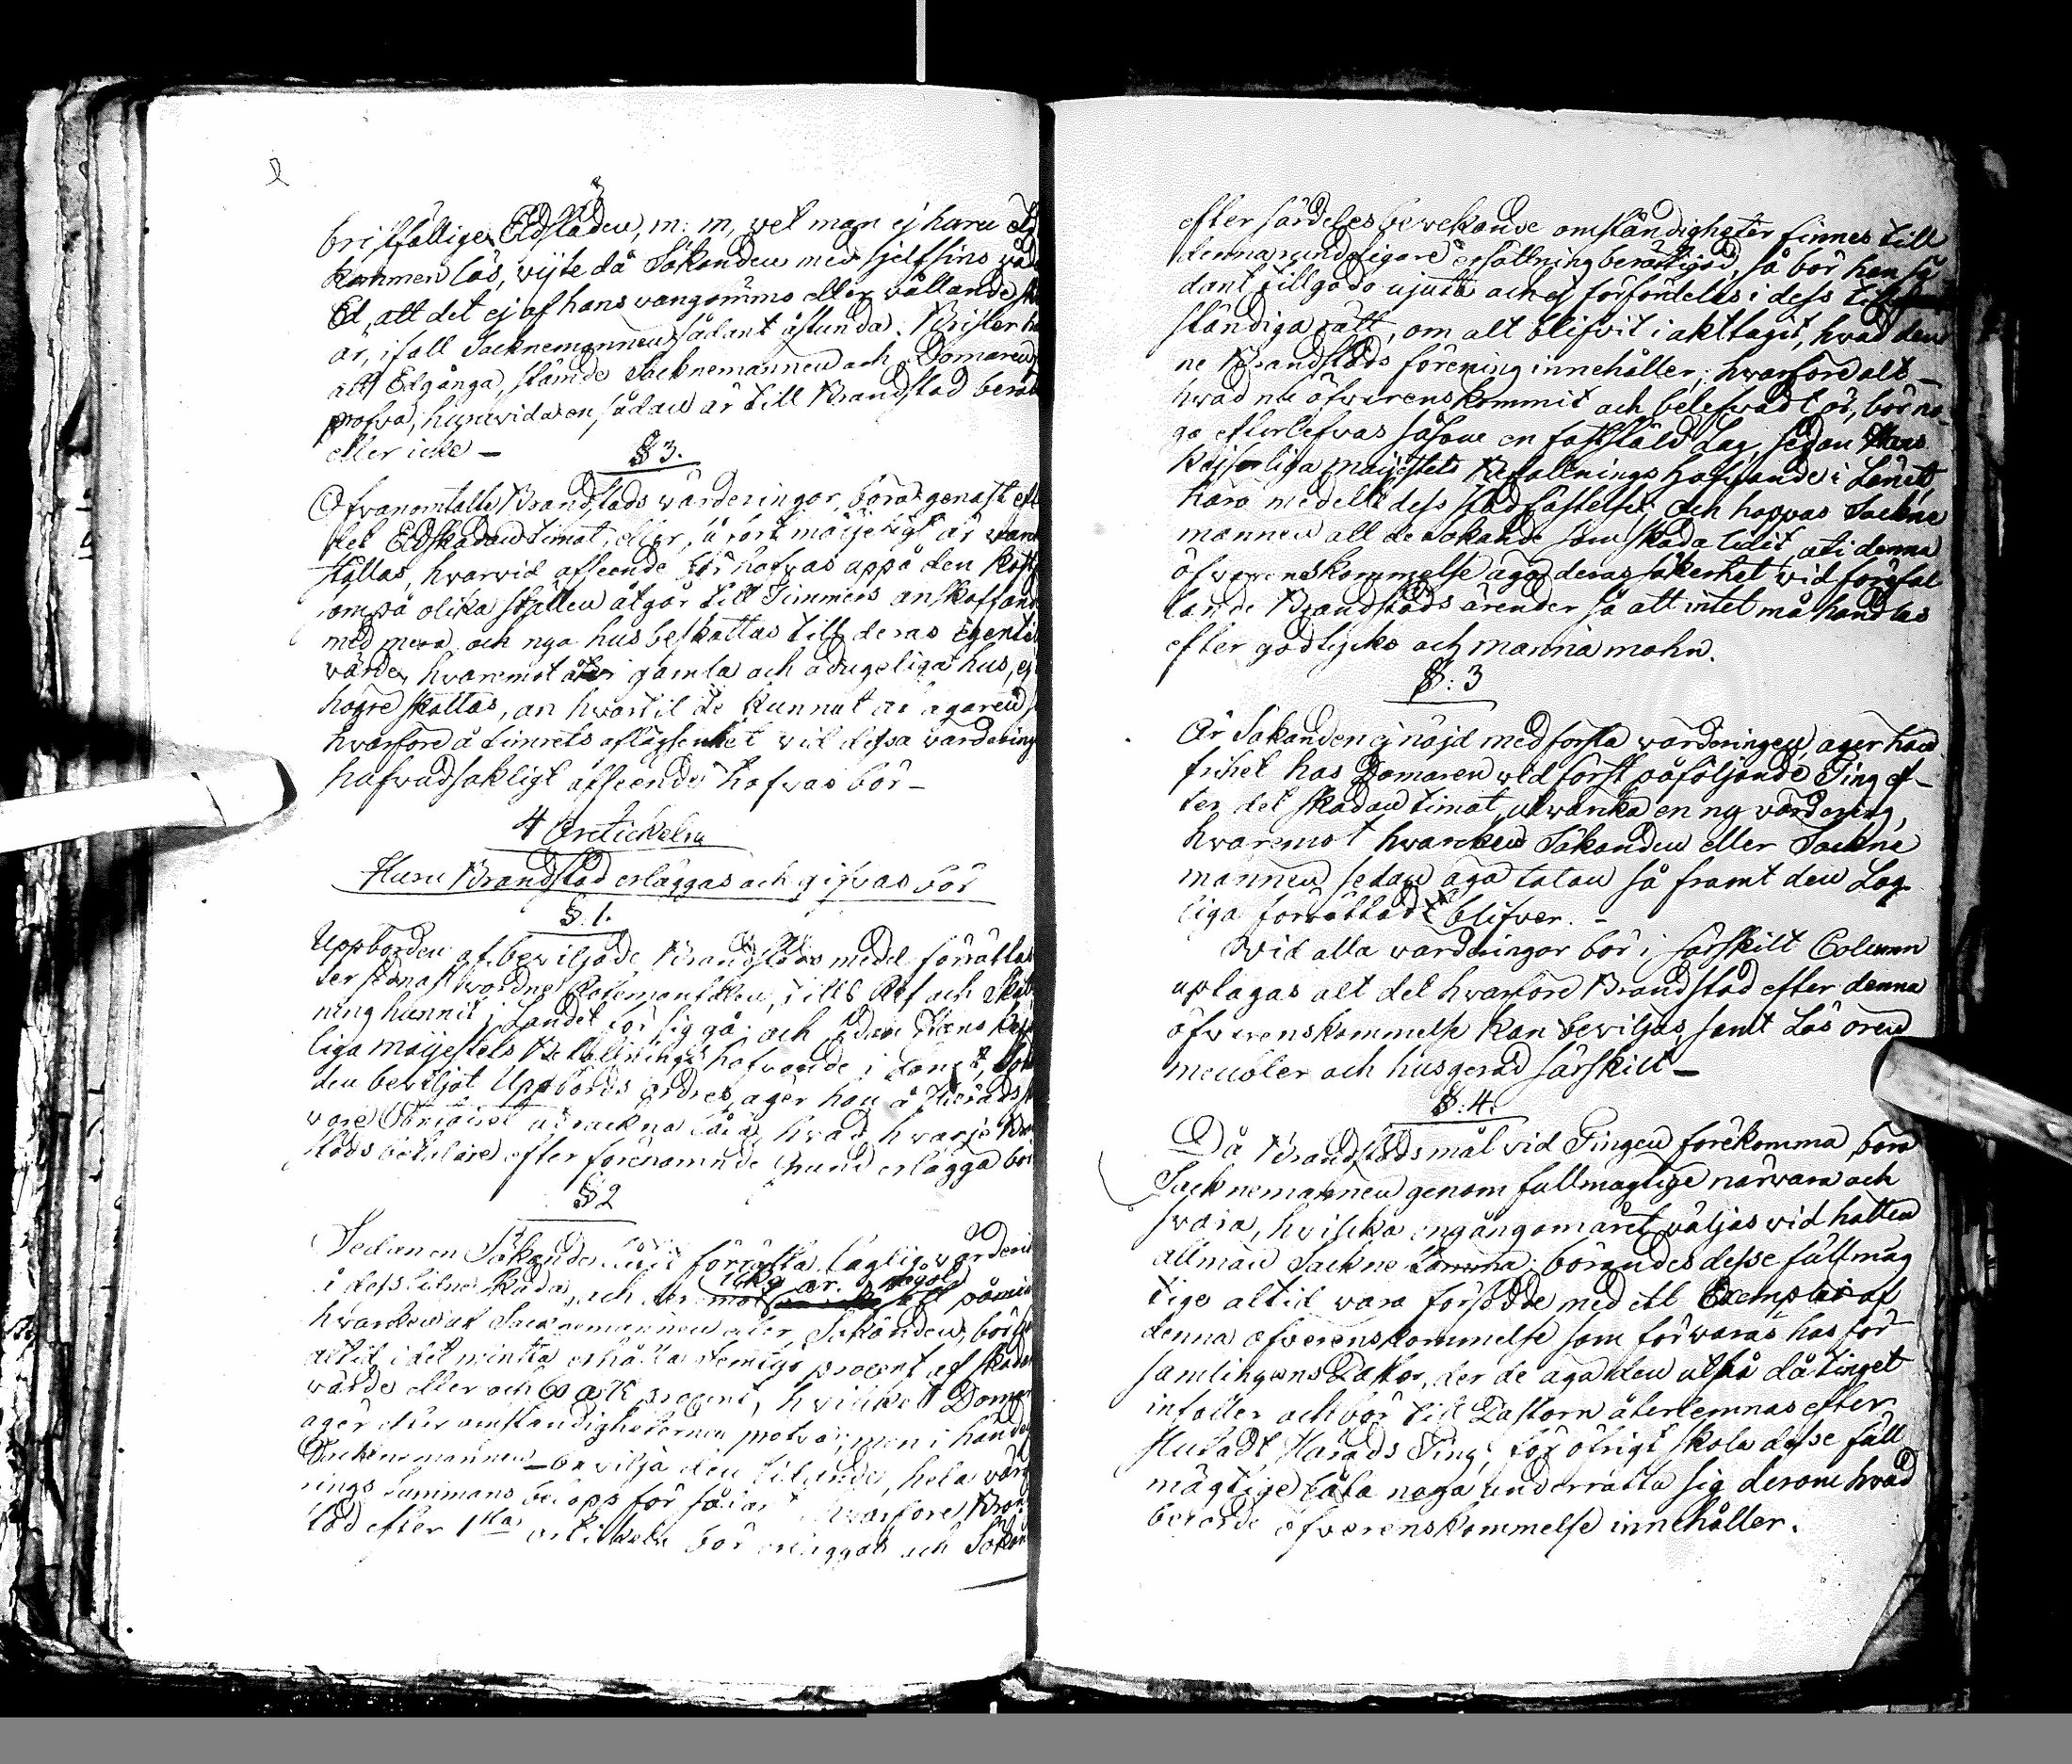 bristfällige Eldstäden, m: m, vet man ej huru El
kommen lös, vijte då Sökanden med sjelfsins
Ed, att det ej af hans vangömmo eller vållande
är, ifall Socknemännen sådant åstunda. Brister
att Edgånga, stämde Socknemännen och Domaren
pröfva, huruvida en sådan är till Brandstod berät
eller icke —
§ 3.
Ofvanomtalte Brandstods värderingar, böra genast eft
det Eldskadan timat, eller, så fort möijeligt är
ställas, hvarvid afseende bör hafvas uppå den kost
som på olika ställen åtgår till Timmers anskaffand
med mera och nya hus beskattas till deras egenteli
värde, hvaremot gamla och odugeliga hus, ej
högre skattas, än hvartil de kunnat af ägaren
hvarföre å timrets aflägsenhet vid dessa värdering
hufvudsakligt afseende hafvas bör —
4 Artickeln
Huru Brandstod erläggas och gifvas bör
§. 1.
Uppbörden af beviljade Brandstods medel förrättas
ning hunnit i Landet för sig gå; och sedan Hans Kej
liga Maijestets Befallningshafvande i Länet,
den beviljat Uppbörds ordres, äger han å Härads
hvad hvarje
stods bitalare efter förenämnde grund erlägga bör
§ 2
Sedan en Sökande låtit förrätta laglig värderi
i dess lidne skada, och der emot icke är något påmin
hvarken af Socknemännen eller Sökanden, bör
altid i det minsta erhålla femtijo procent af skadans
värde eller och 60 à 70 procent, hvilket Domar
äger efter omständigheterna pröfva; men i händ
Socknemännen bevilja den lidande, hela värd
rings summans belopp för sådant hvarföre Bran
stod efter 1sta articklen bör erläggas och Sökan
efter särdeles bevekande omständigheter finnes till
denna rundeligare ersättning berättigad, så bör han så
dant tillgodo njuta och ej förfördelas i dess
ständiga rätt, om alt blifvit i akttagit, hvad den
ne Brandstods förening innehåller; hvarföre alt
hvad nu öfverenskommit och belefvadt är, bör no
ga efterlefvas såsom en fastställd Lag, sedan Hans
Keiserliga Maijestets Befallnings Hafvande i Länet
härå meddelt dess stadfästelse; Och hoppas Sockne
männen att de Sökande som skada lidit, ati denna
öfverenskommelse äga deras säkerhet vid förefal
lande Brandstods ärender så att intet må handlas
efter godtycko och manna mohn.
§: 3
Är Sökanden ej nöjd med första värderingen äger han
frihet hos Domaren vid först påföljande Ting ef-
ter det skadan timat, utvänka en ny värdering,
hvaremot hvarken Sökanden eller Sockne
männen sedan äga talan så framt den Lag
liga förrättad blifver. —
Vid alla värderingar bör i särskilt Column
uptagas alt det hvarföre Brandstod efter denna
öfverenskommelse kan beviljas, samt Lös ören
meubler och husgeråd särskilt —
§: 4.
Då Brandstods mål vid Tingen förekomma böra
Socknemännen genom fullmägtige närvara och
svara, hvilcka engång om året väljas vid hållen
allmän Sockne Stämma; börandes desse fullmäg
tige altid vara försedde med ett Exemplar af
denna öfverenskommelse som förvaras hos för-
samlingens Pastor, der de äga den utfå då tinget
infaller och bör till Pastorn återlemnas efter
slutadt Härads Ting; för öfrigt skola desse full
mägtige låta noga underrätta sig derom hvad
berörde öfverenskommelse innehåller.